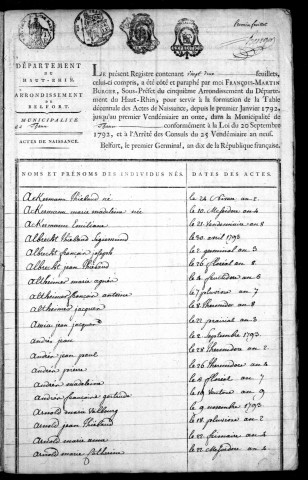 Premier feuillet
DÉPARTEMENT
DU
HAUT-RHIN.
ARRONDISSEMENT
DE
BELFORT.
MUNICIPALITÉ
ACTES DE NAISSANCE.
LE présent Registre contenant vingt deux feuillets,
celui-ci compris, a été côté et paraphé par moi FRANÇOIS-MARTIN
BURGER, Sous-Préfet du cinquième Arrondissement du Département
du Haut-Rhin, pour servir à la formation de la Table
décennale des Actes de Naissance, depuis le premier Janvier 1793,
jusqu'au premier Vendémiaire an onze, dans la Municipalité de
conformément à la Loi du 20 Septembre
1792, et à l'Arrêté des Consuls du 25 Vendémiaire an neuf.
Belfort, le premier Germinal, an dix de la République française.
NOMS ET PRÉNOMS DES INDIVIDUS NÉS.
DATES DES ACTES.
Ackermann Thiébaud né le 24 Nivose an 2
Ackermann marie madeleine née le 10 Messidor an 4
Ackermann le 21 Vendemiaire an 8
Albrecht Thiébaud Sigismond le 30 avril 1793
Albrecht françois joseph le 2 germinal an 3
Albrecht jean Thiébaud le 26 floréal an 8
Altheimer marie agnès le 4 fructidor an 6
Altheimer françois antoine le 7 pluviose an 7
Altheimer jacques le 8 thermidor an 8
jean jacques le 22 prairial an 3
André jean le 2 Septembre 1793
André jean paul le 28 thermidor an 2
André pierre le 26 thermidor an 4
André madeleine le 8 floréal an 7
André françoise le 19 Ventose an 9
Arnold marie Walburg le 9 novembre 1793
Arnold jean Thiébaud le 18 pluviose an 2
Arnold marie anne le 12 frimaire an 4
Arnold marie le 22 Messidor an 4